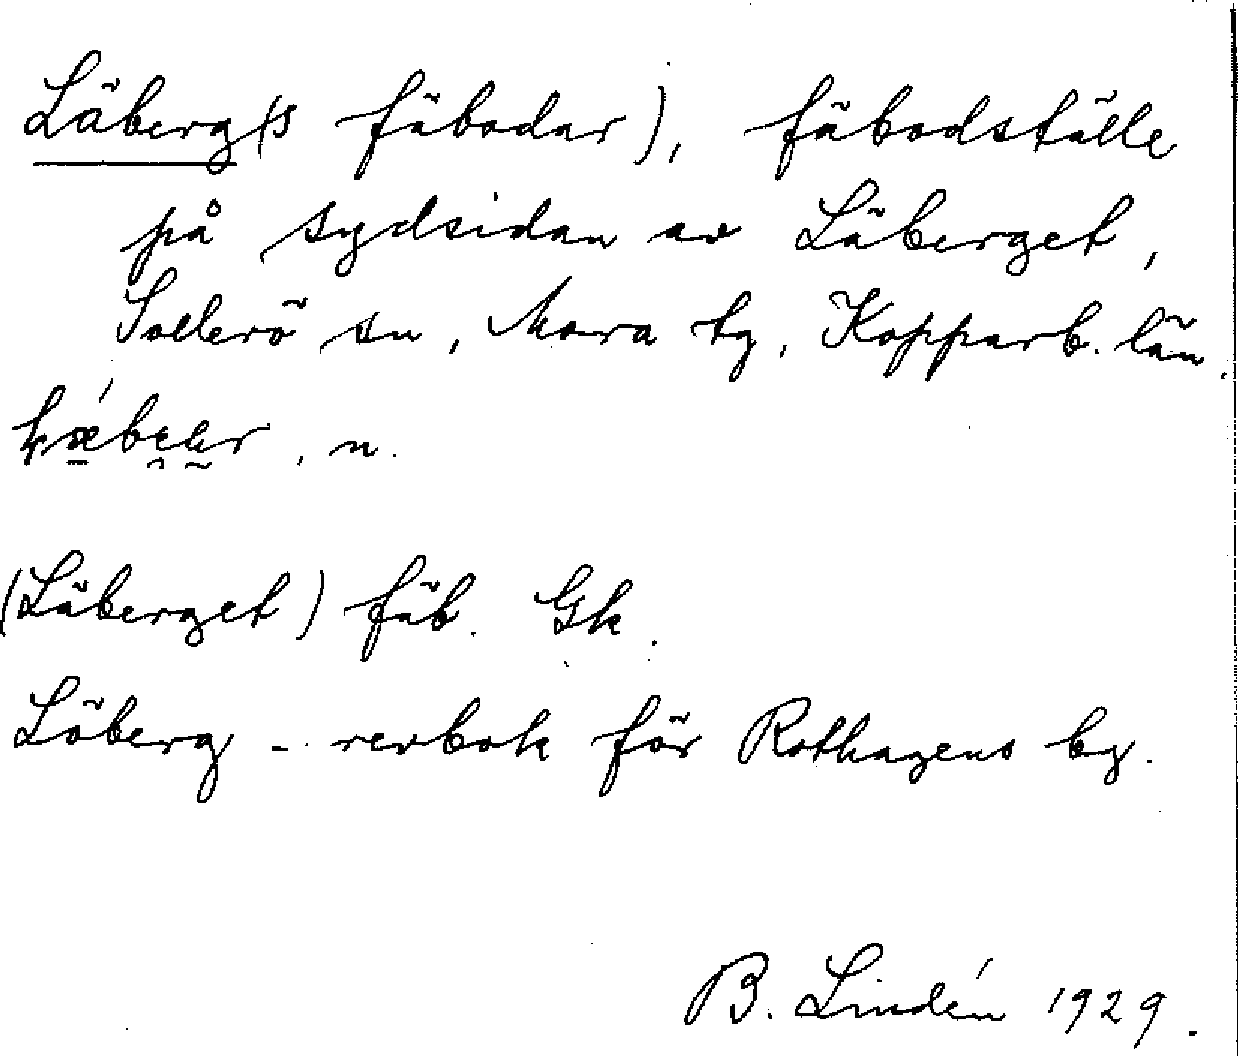 Läberg(s fäbodar), fäbodställe
på sydsidan av Läberget,
Sollerö sn, Mora tg, Kopparb. län.
, n.
(Läberget) fäb. Gk.
Löberg - revbok för Rothagens by.
B. Lindén 1929.